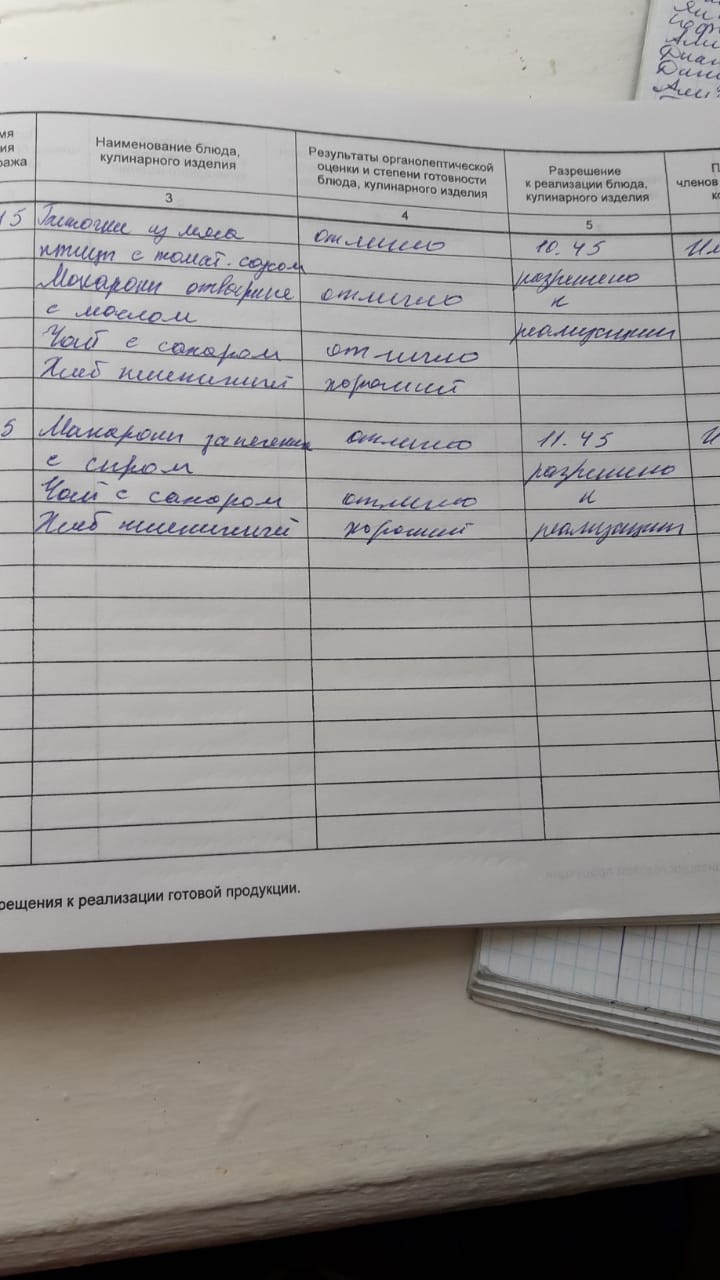 мя
ия
ража
Наименование блюда,
кулинарного изделия
Результаты органолептической
оценки и степени готовности
блюда, кулинарного изделия
Разрешение
к реализации блюда,
кулинарного изделия
членов
3
4
5
15 Биточки из мяса отлично 10.45
птицы с томат. соусом разрешено
Макароны отварные отлично к
с маслом реализации
Чай с сахаром отлично
Хлеб пшеничный хороший
5 Макароны запеченные отлично 11.45
с сыром разрешено
Чай с сахаром отлично к
Хлеб пшеничный хороший реализации
рещения к реализации готовой продукции.